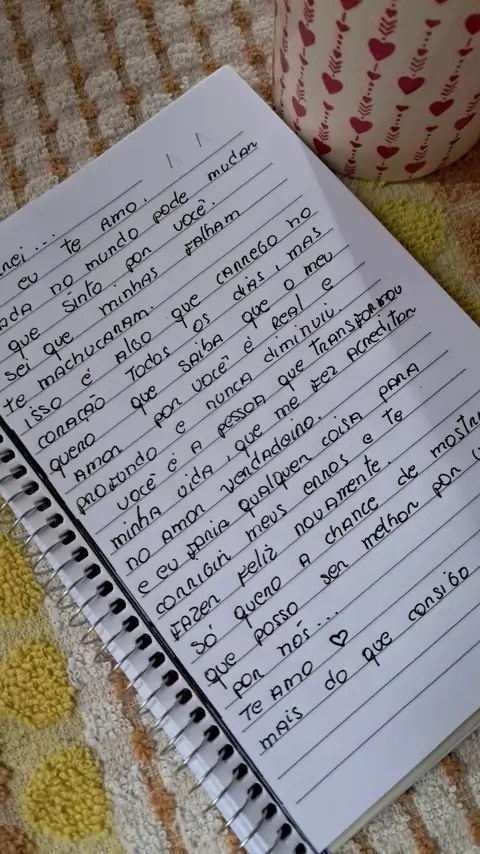 ... eu te amo.
nada no mundo pode mudan
que sinto por você.
sei que minhas falham
te machucaram.
isso é algo que carrego no
coração todos os dias, mas
quero que saiba que o meu
amor por você é real e
profundo e nunca diminuiu.
você é a pessoa que transformou
minha vida, que me fez acreditar
no amor verdadeiro.
e eu faria qualquer coisa para
corrigir meus erros e te
fazer feliz novamente.
só quero a chance de mostrar
que posso ser melhor por
por nós...
te amo ♡
mais do que consigo